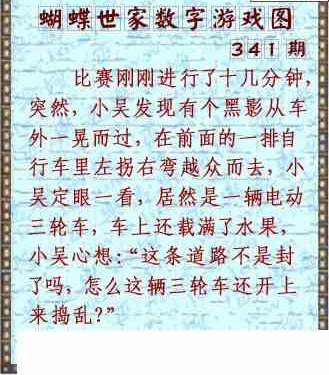 蝴蝶世家数字游戏图
341期
比赛刚刚进行了十几分钟,
突然, 小吴发现有个黑影从车
外一晃而过, 在前面的一排自
行车里左拐右弯越众而去, 小
吴定眼一看, 居然是一辆电动
三轮车, 车上还载满了水果,
小吴心想:“这条道路不是封
了吗, 怎么这辆三轮车还开上
来捣乱?”